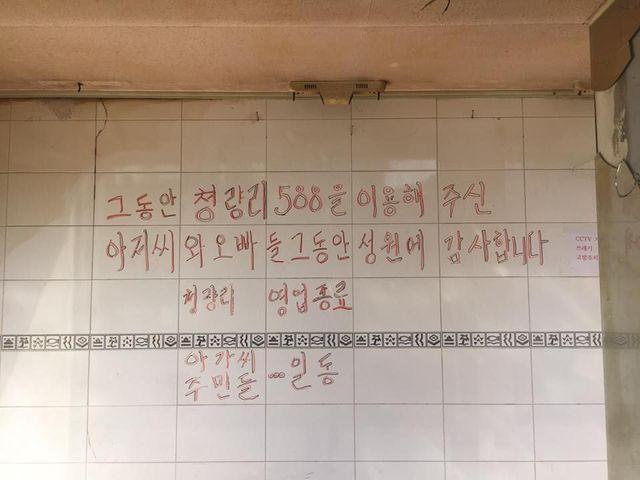 그동안 청량리 588을 이용해 주신
아저씨와 오빠들 그동안 성원에 감사합니다
청량리 영업종료
아가씨
주민들 ... 일동
CCTV
쓰레기